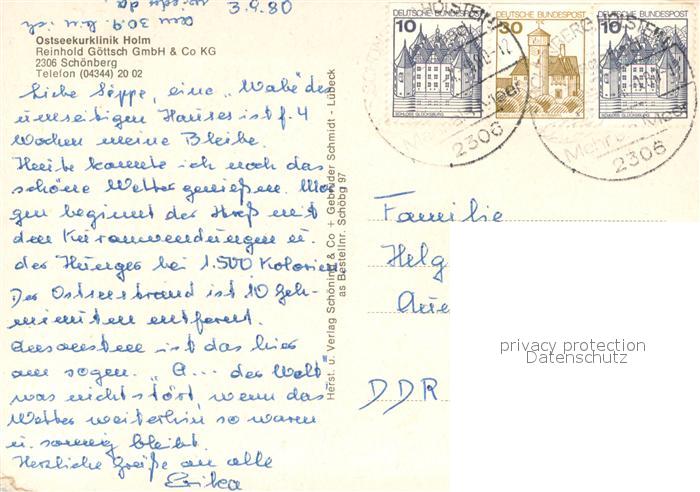 3.9.80
am 30.9. bin ich
wieder da
Ostseekurklinik Holm
Reinhold Göttsch GmbH & Co KG
2306 Schönberg
Telefon (04344) 20 02
Liebe Seppe, eine „Wabe" des
umseitigen Hauses ist f. 4
Wochen meine Bleibe.
Heute konnte ich noch das
schöne Wetter genießen. Mor-
gen beginnt der Streß mit
den Kuranwendungen u.
der Hunger bei 1.500 Kalorien.
Der Ostseestrand ist 10 Geh-
minuten entfernt.
Ansonsten ist das hier
am sogen. „A... der Welt"
was nicht stört, wenn das
Wetter weiterhin so warm
u. sonnig bleibt.
Herzliche Grüße an alle
Erika
Herst. u. Verlag Schöning & Co + Gebrüder Schmidt - Lübeck
as Bestellnr. Schöbg 97
10 DEUTSCHE BUNDESPOST SCHLOSS GLÜCKSBURG
30 DEUTSCHE BUNDESPOST
10 DEUTSCHE BUNDESPOST SCHLOSS GLÜCKSBURG
HOLSTEIN
2306
Mehr am Meer
2306
Familie
Helg
Aue
DDR
privacy protection
Datenschutz